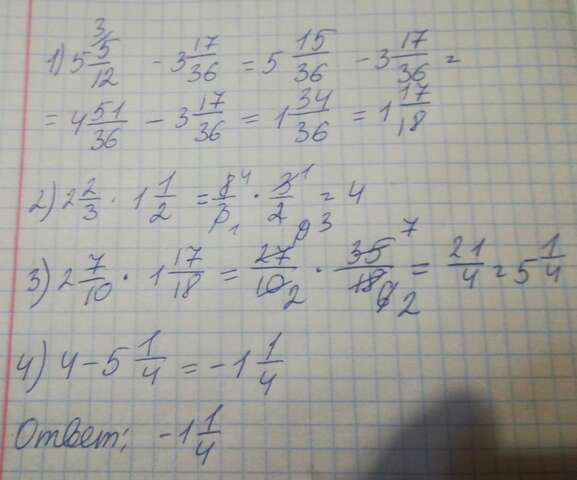 1) 5 5/12 (3) - 3 17/36 = 5 15/36 - 3 17/36 =
= 4 51/36 - 3 17/36 = 1 34/36 = 1 17/18
2) 2 2/3 · 1 1/2 = 8/3 · 3/2 = 4
3) 2 7/10 · 1 17/18 = 27/10 · 35/18 = 21/4 = 5 1/4
4) 4 - 5 1/4 = -1 1/4
Ответ: -1 1/4